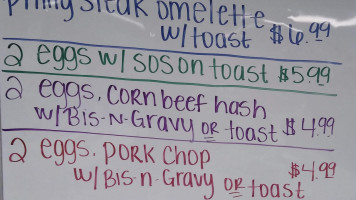 Philly Steak omelette
w/toast $6.99
2 eggs w/ SOS on toast $5.99
2 eggs, Corn beef hash
w/Bis-N-Gravy or toast $4.99
2 eggs. Pork Chop
w/ Bis-n-Gravy or toast $4.99